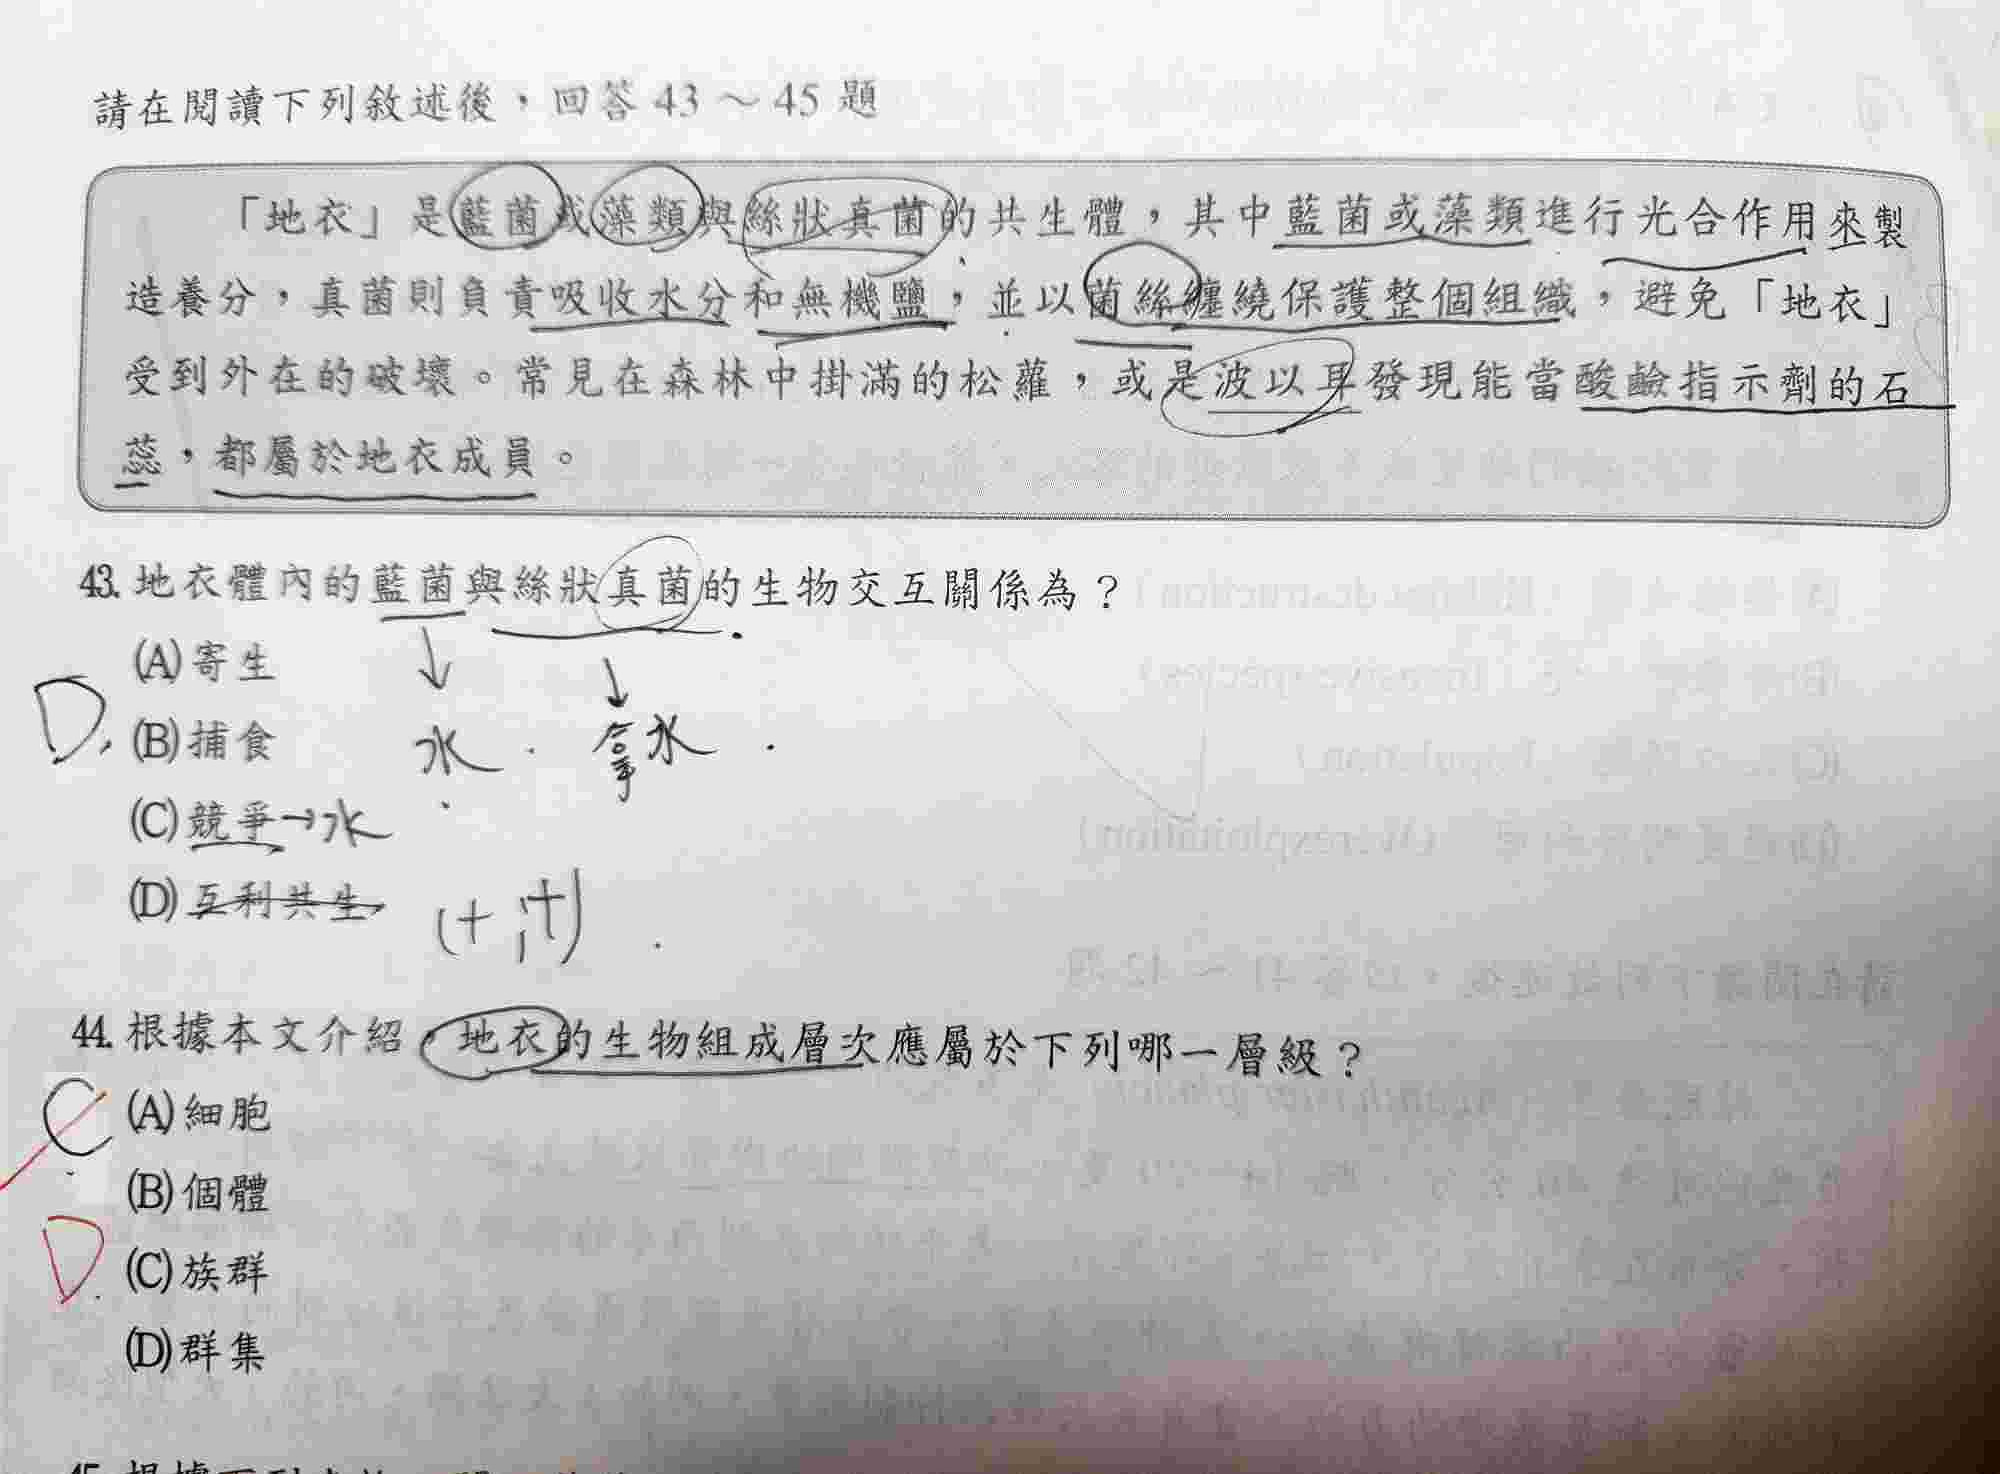 請在閱讀下列敘述後，回答 43 ～ 45 題
「地衣」是藍菌或藻類與絲狀真菌的共生體，其中藍菌或藻類進行光合作用來製
造養分，真菌則負責吸收水分和無機鹽，並以菌絲纏繞保護整個組織，避免「地衣」
受到外在的破壞。常見在森林中掛滿的松蘿，或是波以耳發現能當酸鹼指示劑的石
蕊，都屬於地衣成員。
43. 地衣體內的藍菌與絲狀真菌的生物交互關係為？
(A) 寄生
D.
(B) 捕食 水 拿水
(C) 競爭→水
(D) 互利共生 (+,+)
44. 根據本文介紹，地衣的生物組成層次應屬於下列哪一層級？
C (A) 細胞
(B) 個體
D (C) 族群
(D) 群集